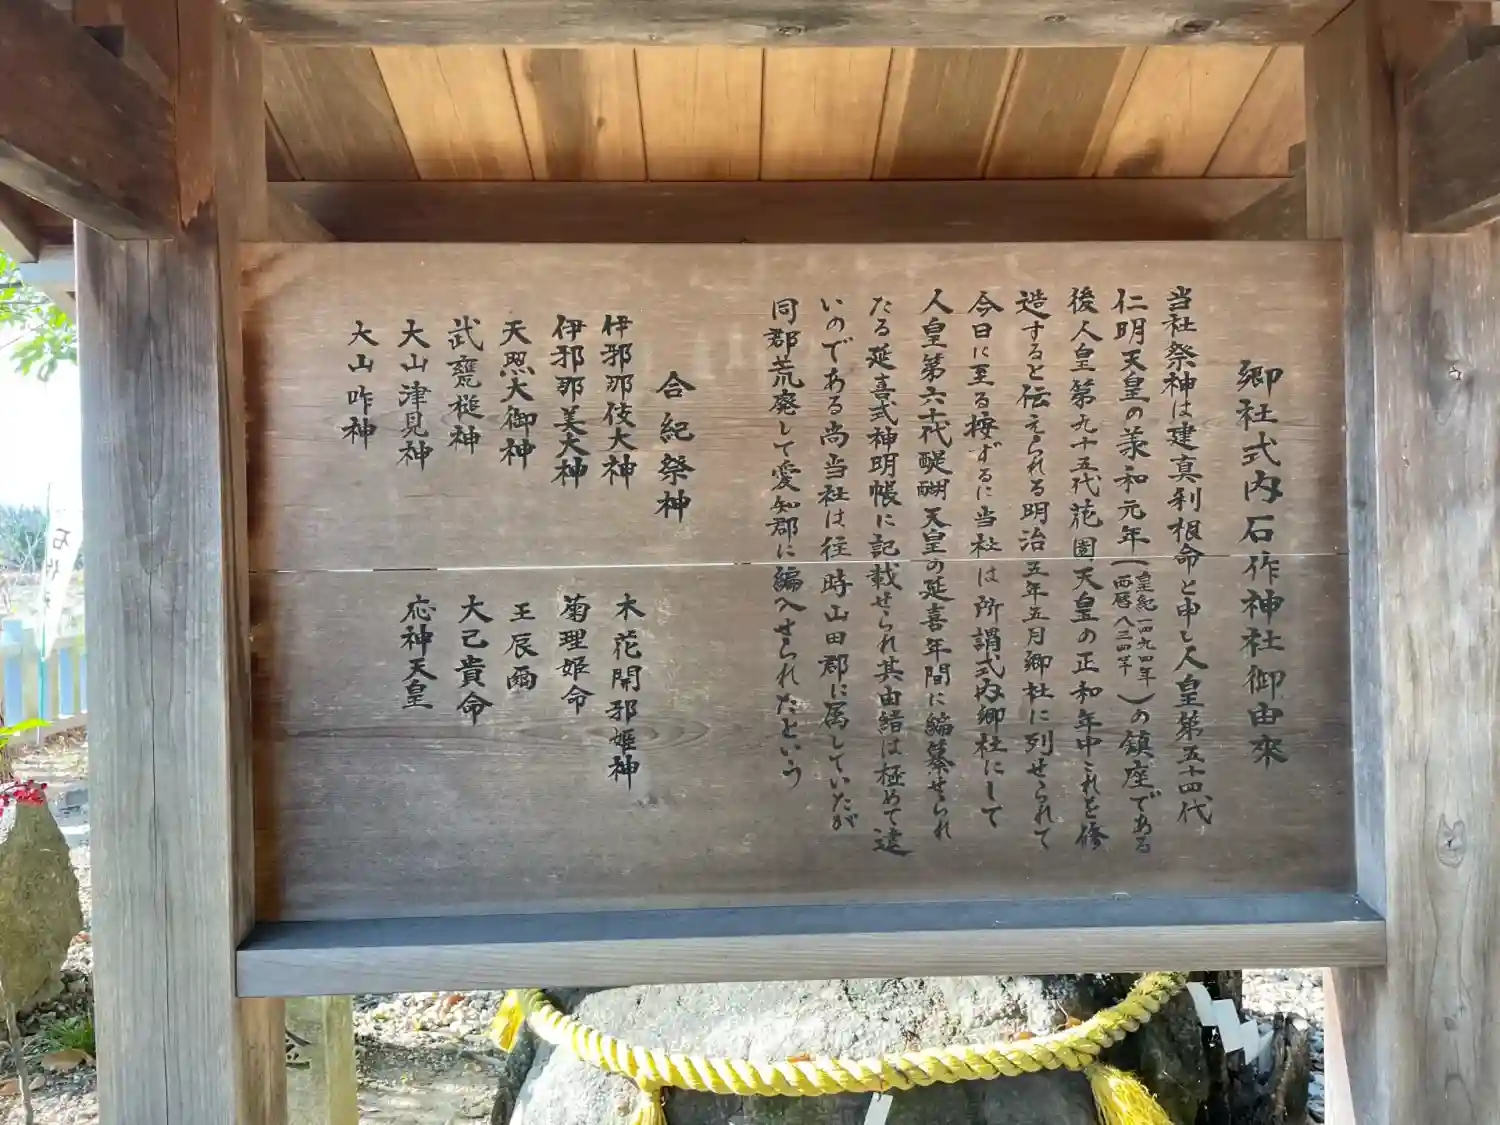 郷社式内石作神社御由来
当社祭神は建真利根命と申し人皇第五十四代
仁明天皇の承和元年(皇紀一四九四年 西暦八三四年)の鎮座である
後人皇第九十五代花園天皇の正和年中これを修
造すると伝えられる明治五年五月郷社に列せられて
今日に至る按ずるに当社は所謂式内郷社にして
人皇第六十代醍醐天皇の延喜年間に編纂せられ
たる延喜式神明帳に記載せられ其由緒は極めて遠
いのである尚当社は往時山田郡に属していたが
同郡荒廃して愛知郡に編入せられたという
合紀祭神
伊邪那伎大神
伊邪那美大神
天照大御神
武甕槌神
大山津見神
大山咋神
木花開邪姫神
菊理姫命
王辰爾
大己貴命
応神天皇